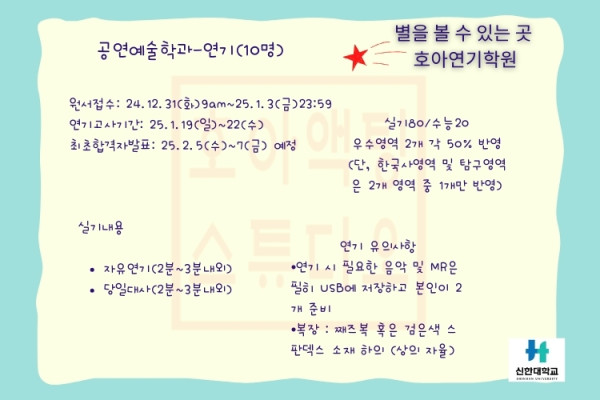 별을 볼 수 있는 곳
호아연기학원
공연예술학과-연기(10명)
원서접수: 24.12.31(화)9am~25.1.3(금)23:59
연기고사기간: 25.1.19(일)~22(수)
최초합격자발표: 25.2.5(수)~7(금) 예정
실기80/수능20
우수영역 2개 각 50% 반영
(단, 한국사영역 및 탐구영역
은 2개 영역 중 1개만 반영)
실기내용
• 자유연기(2분~3분내외)
• 당일대사(2분~3분내외)
연기 유의사항
•연기 시 필요한 음악 및 MR은
필히 USB에 저장하고 본인이 2
개 준비
•복장 : 째즈복 혹은 검은색 스
판덱스 소재 하의 (상의 자율)
호아액팅
스튜디오
신한대학교
SHINHAN UNIVERSITY